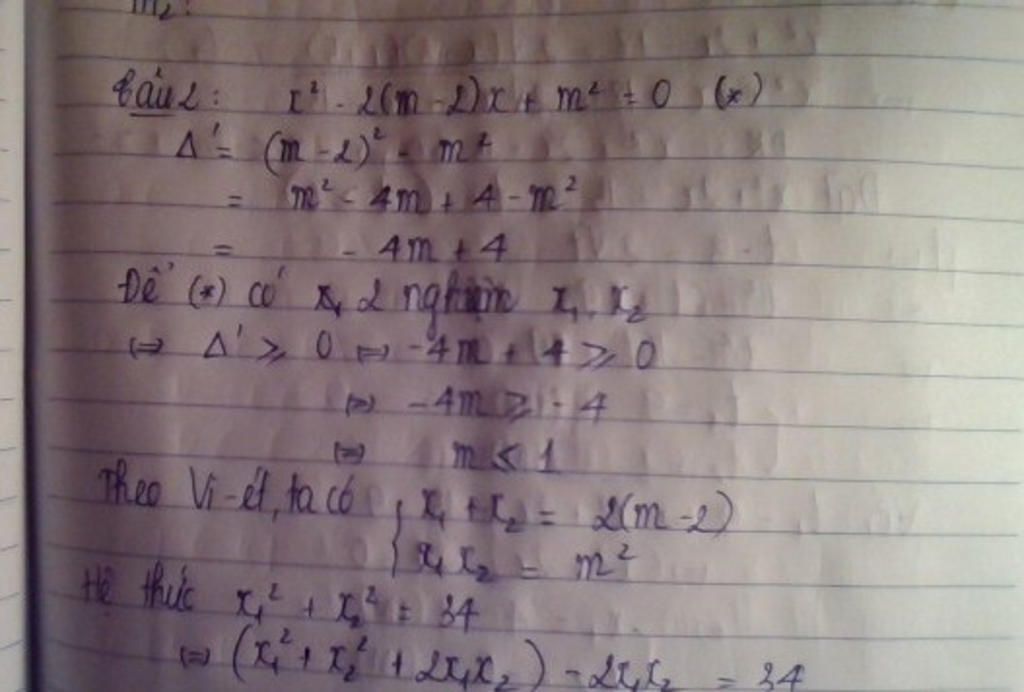 m₂:
Câu 2: x² - 2(m - 2)x + m² = 0 (*)
Δ' = (m - 2)² - m²
= m² - 4m + 4 - m²
= - 4m + 4
Để (*) có x₁ 2 nghiệm x₁, x₂
⇔ Δ' ⩾ 0 ⇔ -4m + 4 ⩾ 0
⇔ -4m ⩾ - 4
⇔ m ⩽ 1
Theo Vi-ét, ta có { x₁ + x₂ = 2(m - 2)
x₁ x₂ = m²
Hệ thức x₁² + x₂² = 34
⇔ (x₁² + x₂² + 2x₁x₂) - 2x₁x₂ = 34